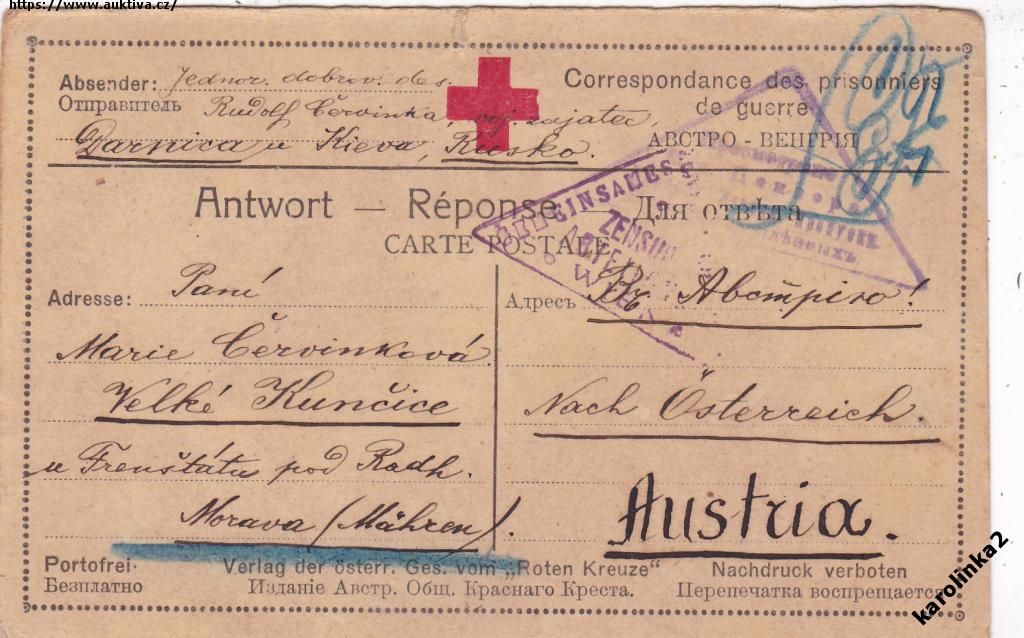 https://www.aukтiva.cz/
Absender: Jednor. dobrov. des.
Отправитель Rudolf Červinka voj. zajatec,
Darnica u Kieva, Rusko.
Correspondance des prisonniers
de guerre
АВСТРО - ВЕНГРІЯ
Antwort — Réponse — Для отвѣта
CARTE POSTALE
ZENSUR
WIEN
Adresse: Paní
Marie Červinková
Velké Kunčice
u Frenštátu pod Radh.
Morava (Mähren).
Адресъ Въ Австрію!
Nach Österreich.
Austria.
Portofrei· Verlag der österr. Ges. vom „Roten Kreuze" Nachdruck verboten
Безплатно Изданіе Австр. Общ. Краснаго Креста. Перепечатка воспрещается
karolinka2